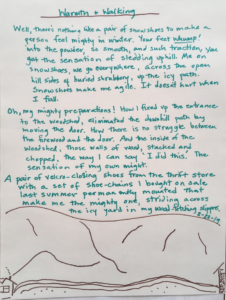 Warmth + Walking
Well, there's nothing like a pair of snowshoes to make a
person feel mighty in winter. Your feet whump!
into the powder, so smooth, and such traction, you
get the sensation of sledding uphill. Me on
snowshoes, we go everywhere, across the open
hill sides of buried shrubbery, up the icy path.
Snowshoes make me agile. It doesn't hurt when
I fall.
Oh, my mighty preparations! How I fixed up the entrance
to the woodshed, eliminated the downhill path by
moving the door. Now there is no struggle between
the firewood and the door. And the inside of the
woodshed, those walls of wood, stacked and
chopped, the way I can say, 'I did this.' The
sensation of my own might.
A pair of velcro-closing shoes from the thrift store
with a set of shoe-chains I bought on sale
last summer permanently mounted that
make me the mighty one, striding across
the icy yard in my wood fetching slippers.